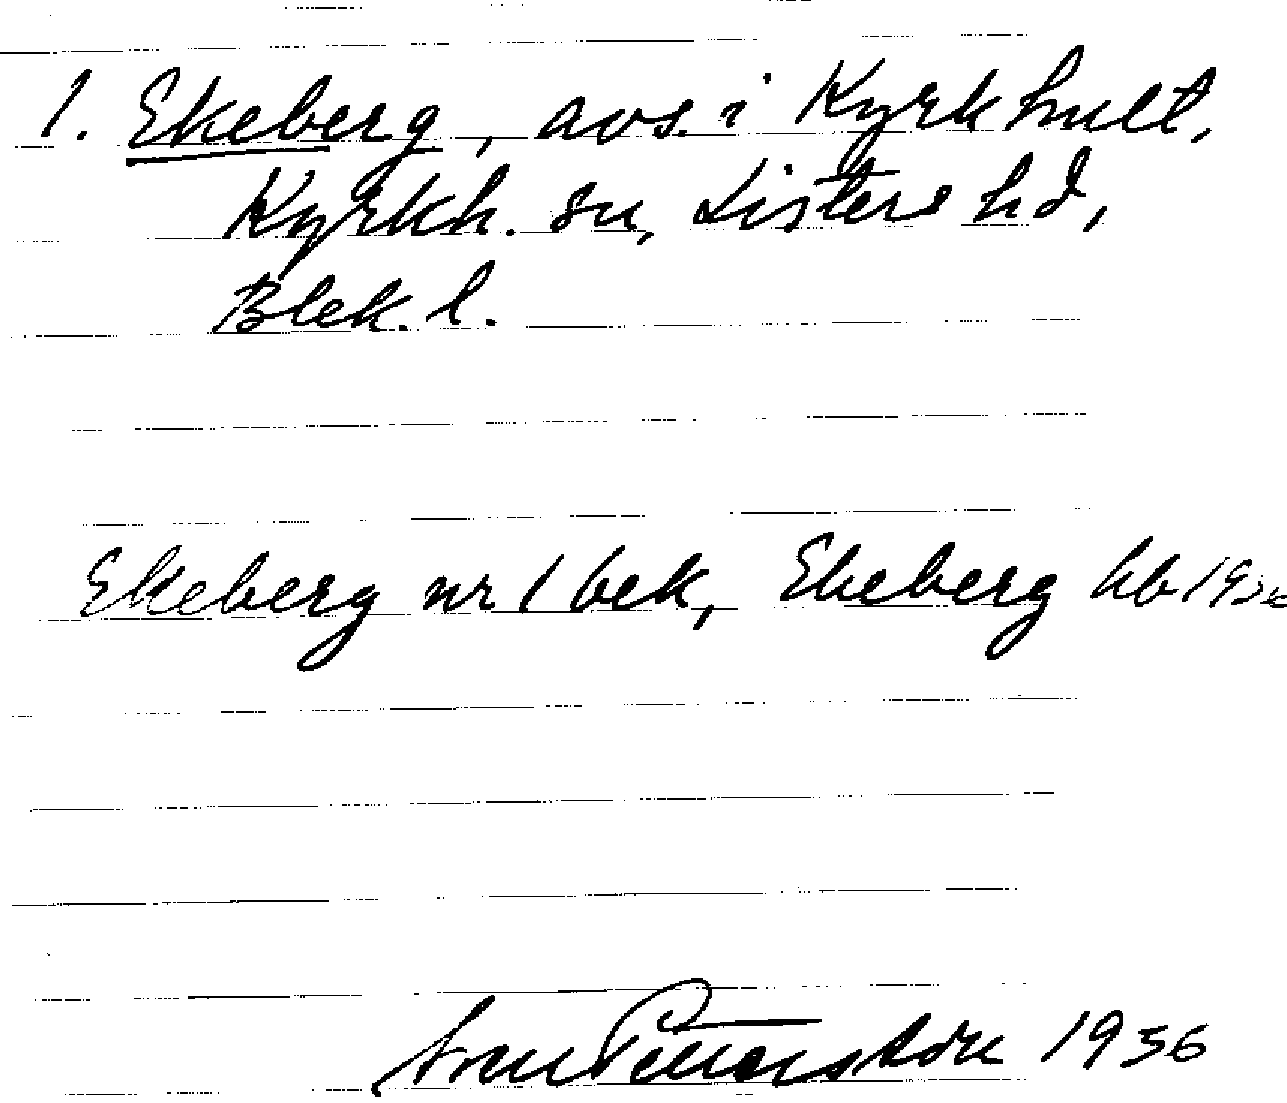 1. Ekeberg, avs. i Kyrkhult,
Kyrkh. sn, Listers hd,
Blek. l.
Ekeberg nr 1 bek, Ekeberg hb 1936
1936